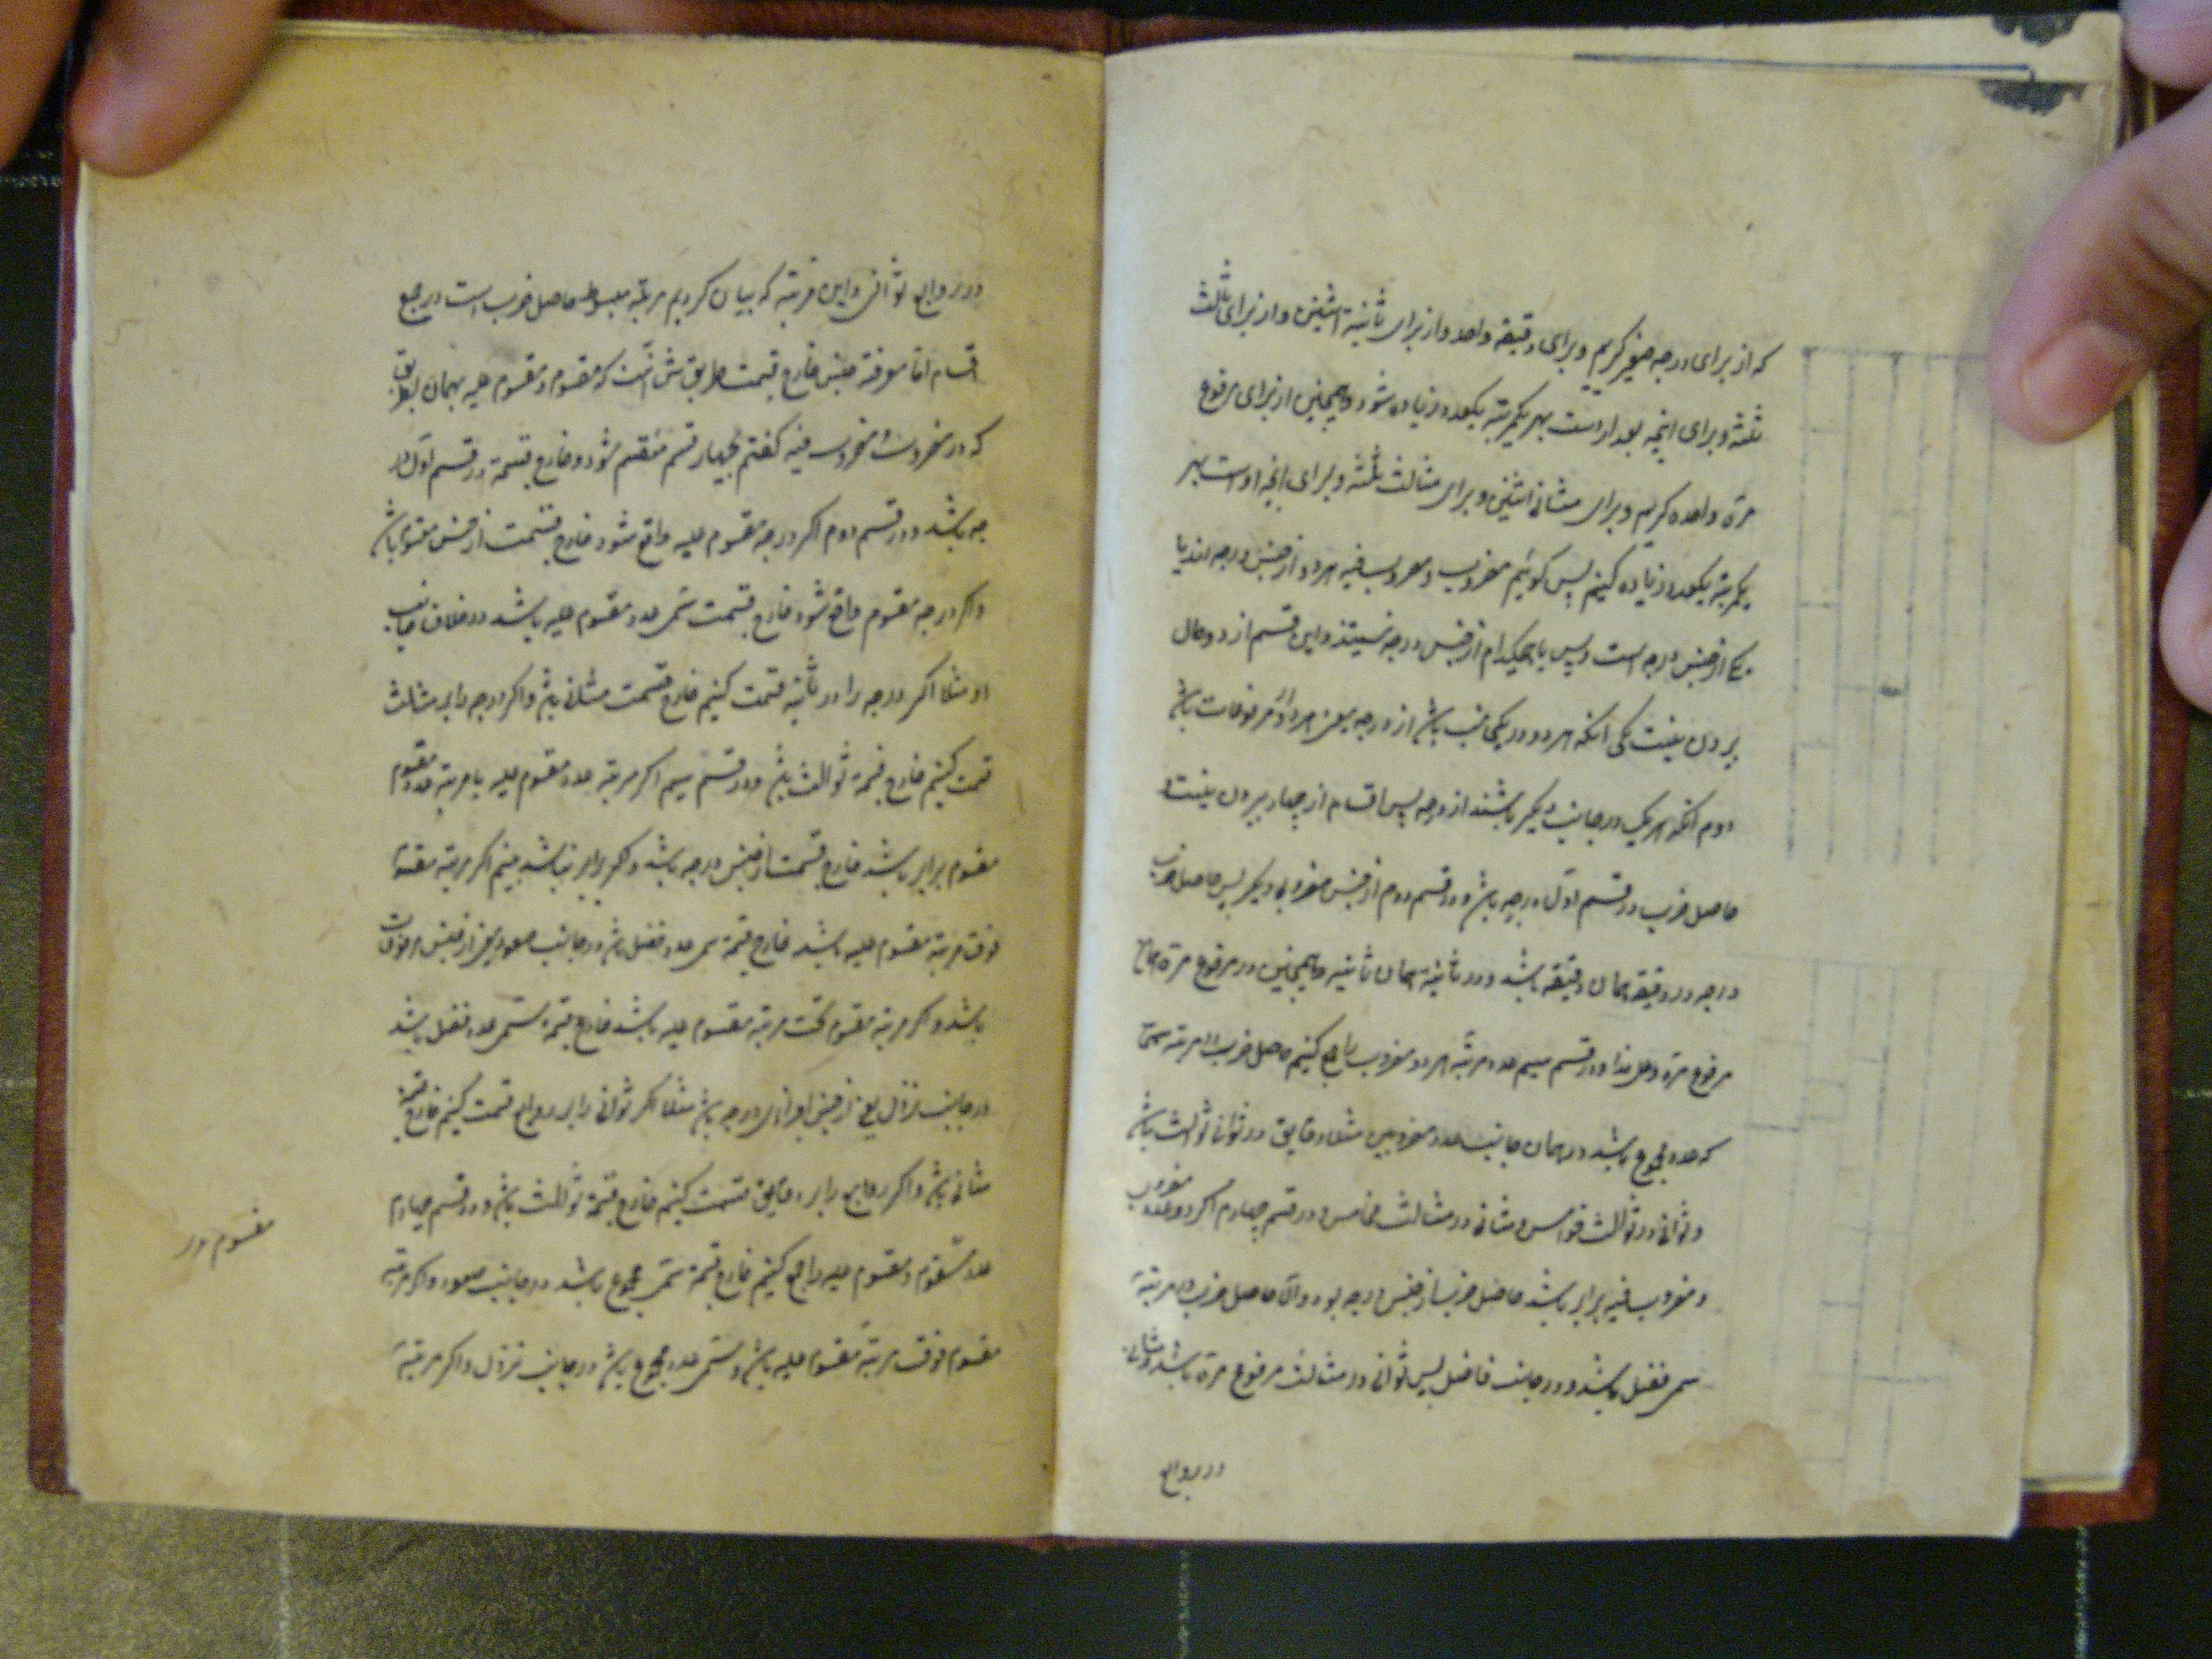 که از برای درجه صفر گیریم و برای دقیقه واحد و از برای ثانیه اثنین و از برای ثالثه
ثلثه و برای آنچه بعد از اوست بهر یکمرتبه یکعدد زیاده شود و همچنین از برای مرفوع
مرة واحده گیریم و برای مثانی اثنین و برای مثالث ثلثه و برای آنچه اوست بهر
یکمرتبه یکعدد زیاده کنیم پس گوئیم مضروب و مضروب فیه هر دو از جنس درجه اند یا
یکی از جنس درجه است و بس یا هیچکدام از جنس درجه نیستند و این قسم از دو حال
بیرون نیست یکی آنکه هر دو در یک جنب باشد از درجه یعنی هر دو از مرفوعات باشد
دوم آنکه هر یک در جانب دیگر باشند از درجه پس اقسام از چهار بیرون نیست
حاصل ضرب در قسم اول درجه باشد و در قسم دوم از جنس مضروب دیگر پس حاصل ضرب
درجه در دقیقه همان دقیقه باشد و در ثانیه همان ثانیه و همچنین در مرفوع مرة همان
مرفوع مرة و علی هذا و در قسم سیم عدد مرتبه هر دو مضروب را جمع کنیم حاصل ضرب
که عدد مجموع باشد در همان جانب عدد مضروبین مثلا دقایق در ثوانی ثوالث باشد
و ثوانی در ثوالث خوامس و مثانی در مثالث مخامس و در قسم چهارم اگر دو عدد مضروب
و مضروب فیه برابر باشد حاصل ضرب از جنس درجه بود والا حاصل ضرب مرتبه
سمی فضل باشد و در جانب فاضل پس ثوانی در مثالث مرفوع مرة باشد و مثانی
در روابع
در روابع ثوانی و این مرتبه که بیان کردیم مرتبه مبسوط حاصل ضرب است در جمیع
اقسام اما معرفة جنس خارج قسمت طریقش آنست که مقسوم و مقسوم علیه بهمان طریق
که در مضروب و مضروب فیه گفتیم بچهار قسم منقسم شود و خارج قسمة در قسم اول در
جه باشد و در قسم دوم اگر درجه مقسوم علیه واقع شود خارج قسمت از جنس مقسوم باشد
و اگر درجه مقسوم واقع شود خارج قسمت سمی عدد مقسوم علیه باشد در خلاف جانب
او مثلا اگر درجه را بر ثانیه قسمت کنیم خارج قسمت مثانی باشد و اگر درجه را بر مثالث
قسمت کنیم خارج قسمة ثوالث باشد و در قسم سیم اگر مرتبه عدد مقسوم علیه با مرتبه عدد مقسوم
مقسوم برابر باشد خارج قسمت از جنس درجه باشد و اگر برابر نباشد بینیم اگر مرتبه مقسوم
فوق مرتبه مقسوم علیه باشد خارج قسمة سمی عدد فضل باشد در جانب صعود یعنی از جنس مرفوعات
باشد و اگر مرتبه مقسوم تحت مرتبه مقسوم علیه باشد خارج قسمة سمی عدد فضل باشد
در جانب نزول یعنی از جنس اجزای درجه باشد مثلا اگر ثوانی را بر روابع قسمت کنیم خارج قسمة
مثانی باشد و اگر روابع را بر دقایق قسمت کنیم خارج قسمة ثوالث باشد و در قسم چهارم
عدد مقسوم و مقسوم علیه را جمع کنیم خارج قسمة سمی مجموع باشد در جانب صعود و اگر مرتبه
مقسوم فوق مرتبه مقسوم علیه باشد و سمی عدد مجموع باشد در جانب نزول و اگر مرتبه
مقسوم در